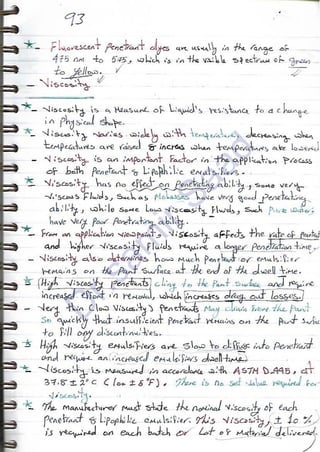 93
- Fluorescent Penetrant dyes are usually in the range of
475 nm to 575, which is in the visible spectrum of green
to yellow.
- Viscosity
- Viscosity is a Measure of Liquid's resistance to a change
in Physical shape.
- Viscosity varies widely with temperatures decreasing when
temperatures are raised & increas when temperatures are lowered
- Viscosity is an important factor in the application Process
of both Penetrant & Lipophilic emulsifiers.
- Viscosity has no effect on Penetrating ability, some very
viscous Fluids, such as Molasses have very good penetrating
ability, while some Low viscosity Fluids, such Pure water,
have very poor Penetrating ability.
- From an application viewpoint, viscosity affects the rate of
and higher viscosity fluids require a longer Penetration time.
- Viscosity also determines how much Penetrant or emulsifier
remains on the Part surface at the end of the dwell time.
(High viscosity Penetrants) cling to the Part surface and require
increased effort in removal, which increases drag out losses.
- Very thin (low viscosity) Penetrants May drain from the Part
so quickly that insufficient Penetrant remains on the Part surface
to fill any discontinuities.
High viscosity emulsifiers are slow to diffuse into Penetrant
and require an increased emulsifiers dwell time.
- Viscosity is Measured in accordance with ASTM D.445, at
37.8 ± 2° C (100 ± 5° F). There is no set value required for
viscosity.
- The manufacturer must state the nominal viscosity of each
Penetrant & Lipophilic emulsifier. This viscosity, ± 10 %
is required on each batch or Lot of Material delivered.